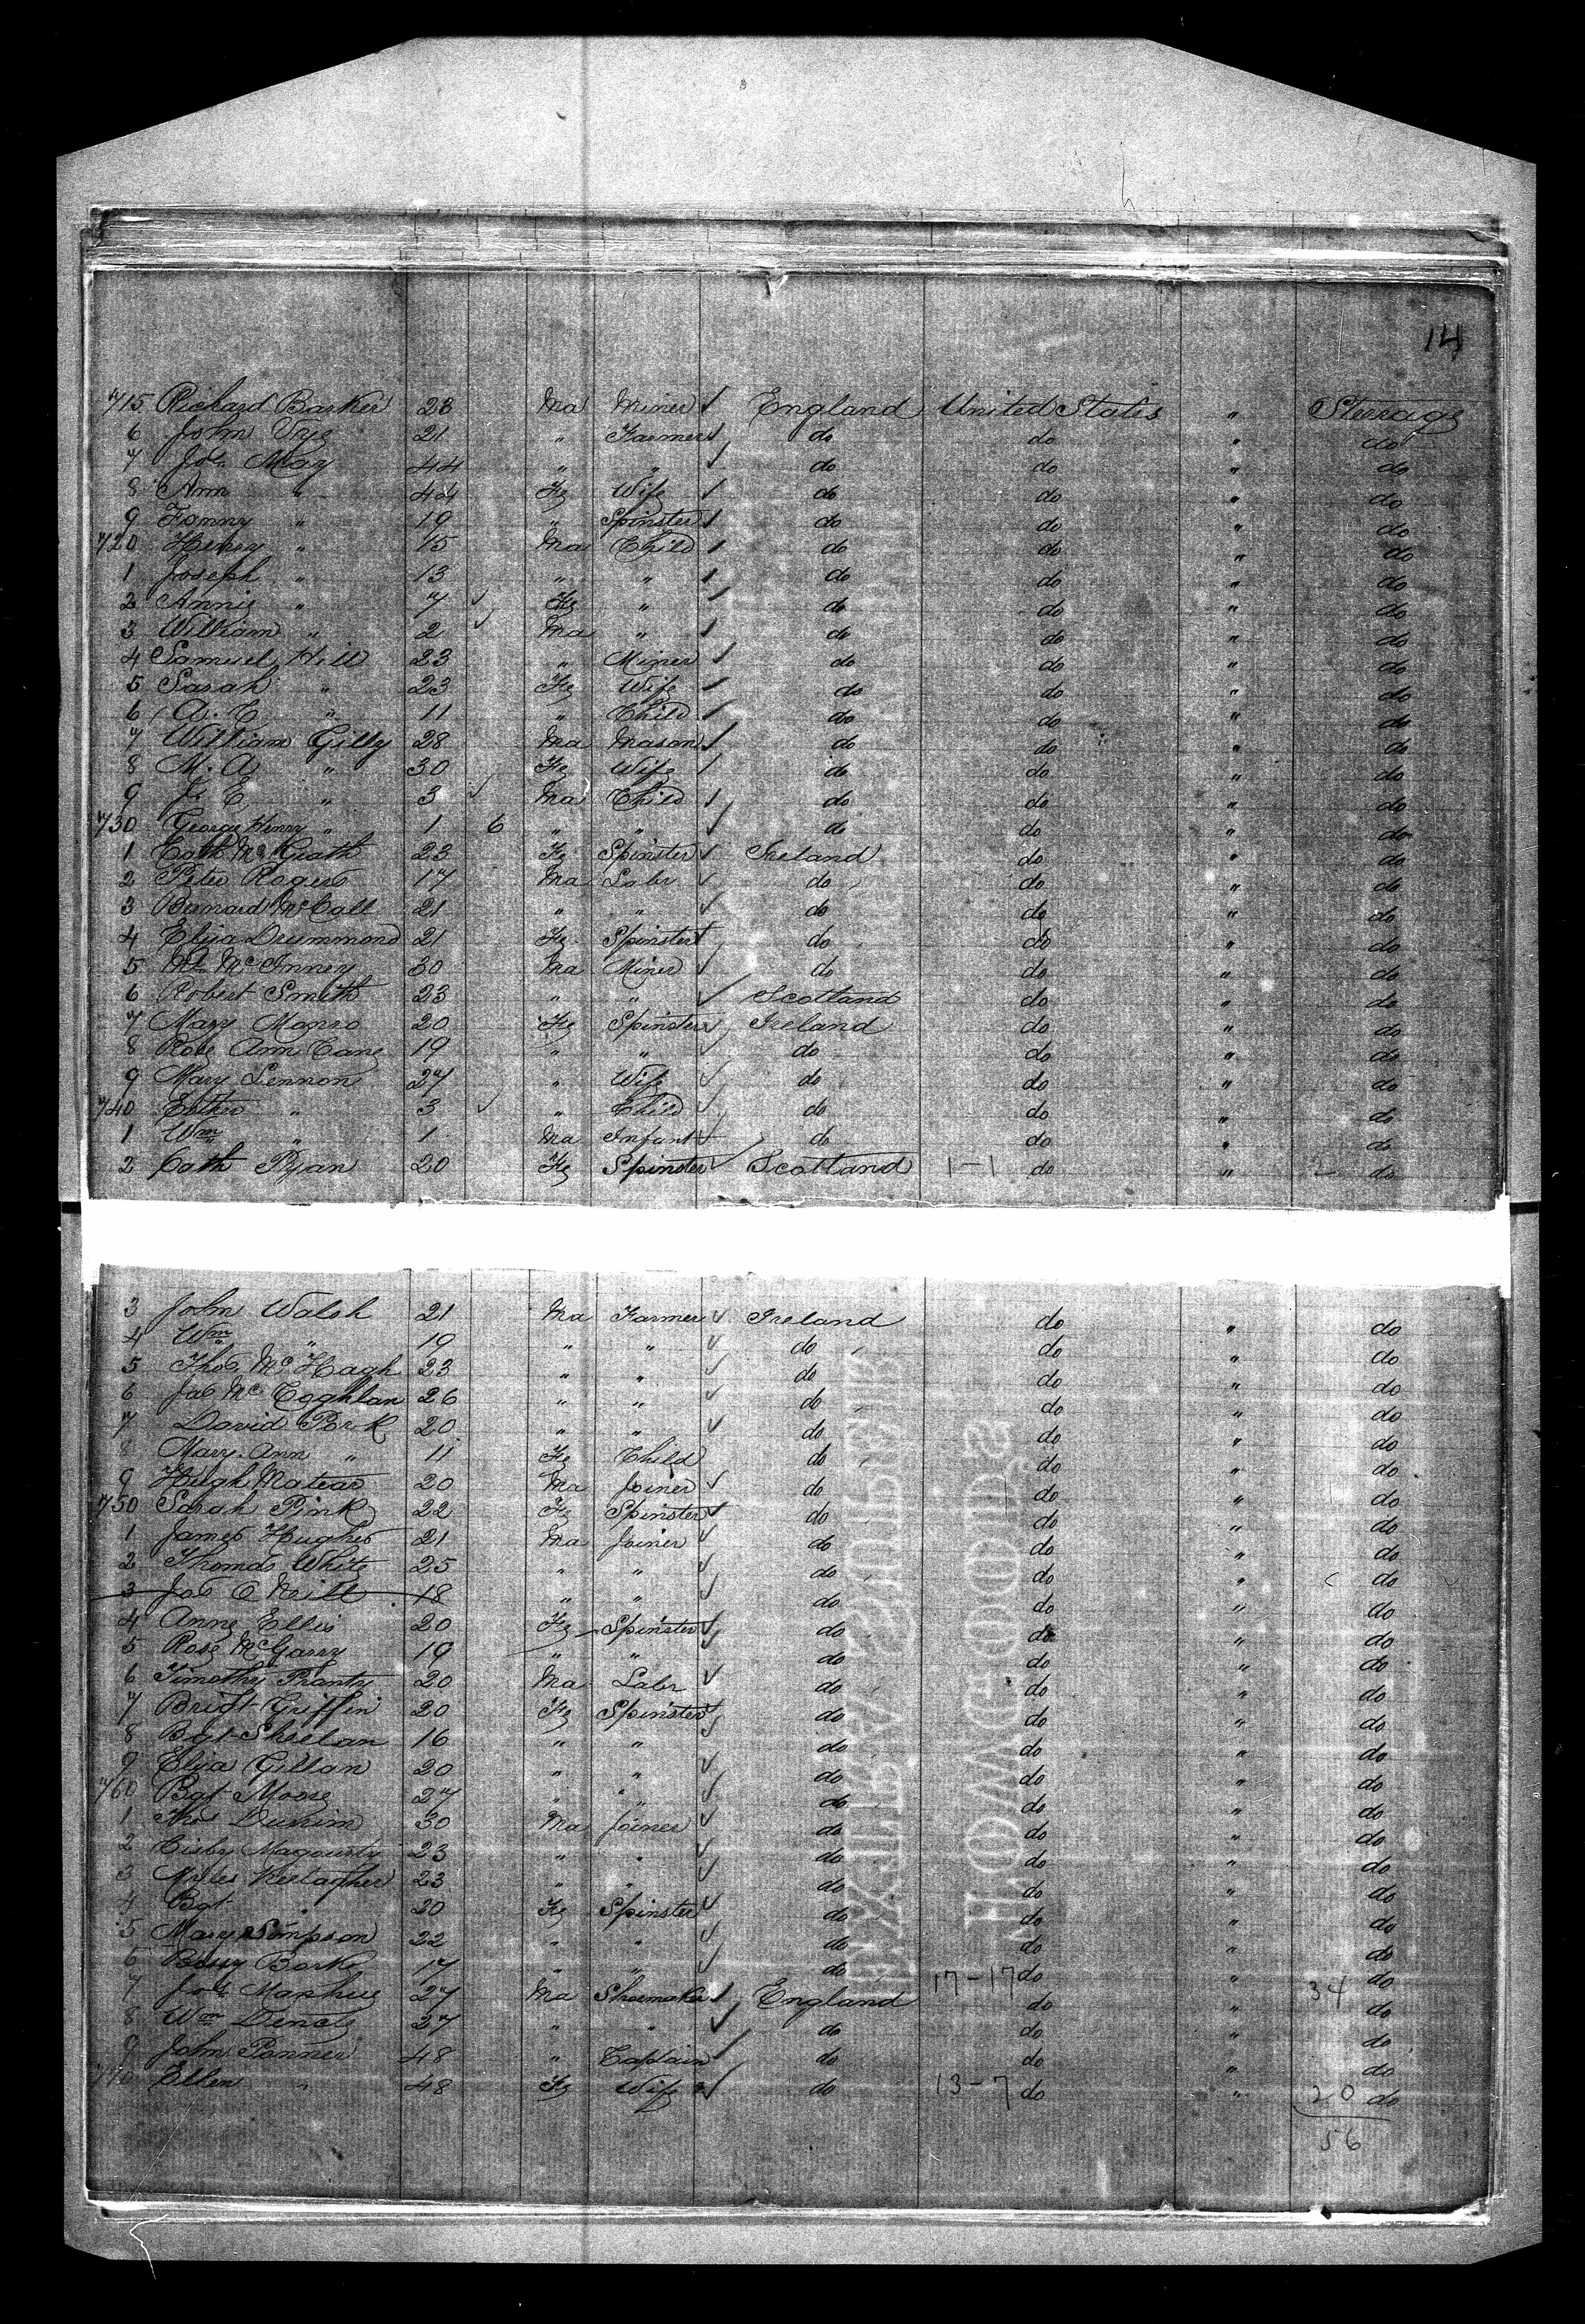 14
715 Richard Barker 23 Ma Miner ✓ England United States " Steerage
6 John Vye 21 " Farmer ✓ do do " do
7 Jos. May 44 " " ✓ do do " do
8 Ann " 44 Fe Wife ✓ do do " do
9 Fanny " 19 " Spinster ✓ do do " do
720 Henry " 15 Ma Child ✓ do do " do
1 Joseph " 13 " " ✓ do do " do
2 Annie " 7 ✓ Fe " ✓ do do " do
3 William " 2 ✓ Ma " ✓ do do " do
4 Samuel Hill 23 " Miner ✓ do do " do
5 Sarah " 23 Fe Wife ✓ do do " do
6 A. C. " 11 " Child ✓ do do " do
7 William Gilly 28 Ma Mason ✓ do do " do
8 M. A. " 30 Fe Wife ✓ do do " do
9 J. E. " 3 ✓ Ma Child ✓ do do " do
730 George Henry " 1 6 " " ✓ do do " do
1 Cath McGrath 23 Fe Spinster ✓ Ireland do " do
2 Peter Rogers 17 Ma Labr ✓ do do " do
3 Bernard McCall 21 " " ✓ do do " do
4 Eliza Drummond 21 Fe Spinster ✓ do do " do
5 McInney 30 Ma Miner ✓ do do " do
6 Robert Smith 23 " " ✓ Scotland do " do
7 Mary Monro 20 Fe Spinster ✓ Ireland do " do
8 Rose Ann Cane 19 " " ✓ do do " do
9 Mary Lennon 27 " Wife ✓ do do " do
740 Esther " 3 ✓ " Child ✓ do do " do
1 Wm " 1 Ma Infant ✓ do do " do
2 Cath Ryan 20 Fe Spinster ✓ Scotland 1-1 do " 2 do
3 John Walsh 21 Ma Farmer ✓ Ireland do " do
4 Wm " 19 " " ✓ do do " do
5 Thos McHagh 23 " " ✓ do do " do
6 Jas McCoghlan 26 " " ✓ do do " do
7 David Park 20 " " ✓ do do " do
8 Mary Ann " 11 Fe Child do do " do
9 Hugh Matear 20 Ma Joiner ✓ do do " do
750 Sarah Pink 22 Fe Spinster ✓ do do " do
1 James Hughes 21 Ma Joiner ✓ do do " do
2 Thomas White 25 " " ✓ do do " do
3 Jas O Neill 18 " " ✓ do do " do
4 Anne Ellis 20 Fe Spinster ✓ do do " do
5 Rose McGarry 19 " " do do " do
6 Timothy 20 Ma Labr ✓ do do " do
7 Bridt Griffin 20 Fe Spinster ✓ do do " do
8 Bgt Sheelan 16 " " do do " do
9 Eliza Gillan 20 " " ✓ do do " do
760 Bgt Moore 27 " " ✓ do do " do
1 Thos 30 Ma Joiner ✓ do do " do
2 23 " " ✓ do do " do
3 Myles 23 " " ✓ do do " do
4 Bgt " 20 Fe Spinster ✓ do do " do
5 Mary Simpson 22 " " ✓ do do " do
6 17 " " ✓ do 17-17 do " 34 do
7 27 Ma Shoemaker ✓ England do " do
8 Wm 27 " " ✓ do do " do
9 John 48 " Captain ✓ do do " do
770 Ellen " 48 Fe Wife ✓ do 13-7 do " 20 do
56
EXTRA SUPERFINE
HOWGOODS